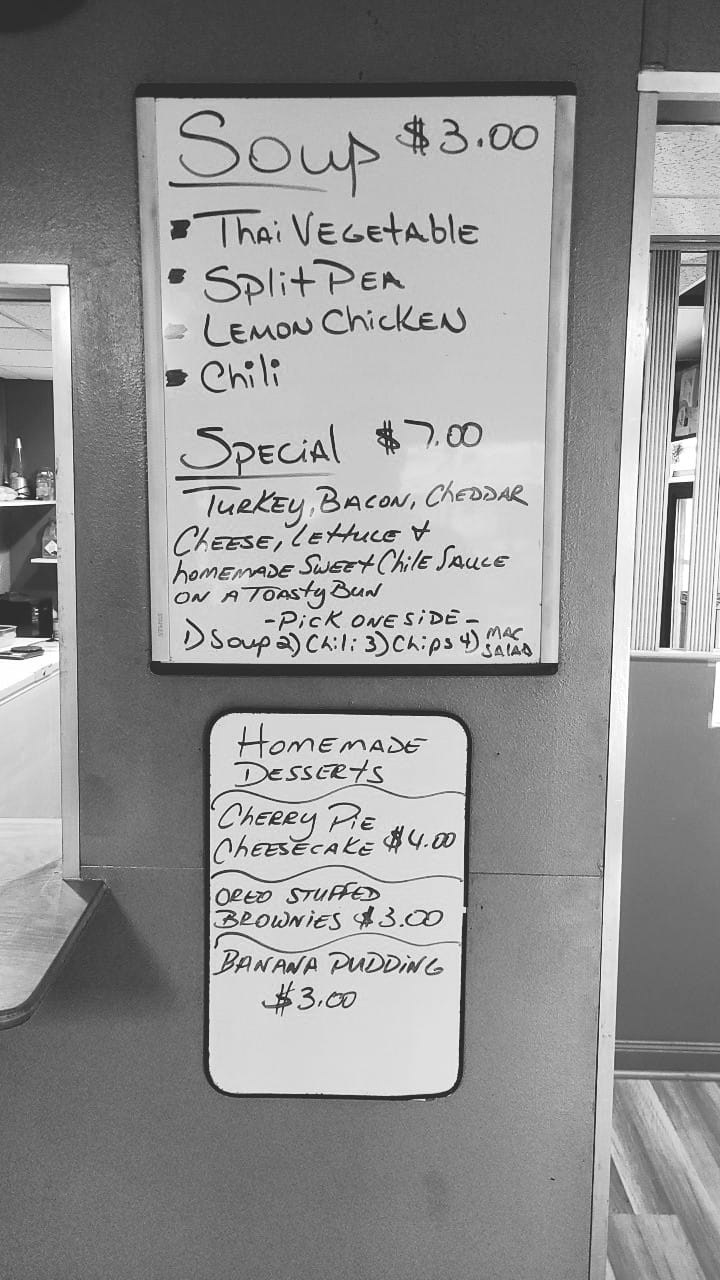 Soup $3.00
Thai Vegetable
Split Pea
Lemon Chicken
Chili
Special $7.00
Turkey, Bacon, Cheddar
Cheese, Lettuce &
homemade Sweet Chile Sauce
on a Toasty Bun
-Pick one side-
1) Soup 2) Chili 3) Chips 4) Mac Salad
Homemade
Desserts
Cherry Pie
Cheesecake $4.00
Oreo Stuffed
Brownies $3.00
Banana Pudding
$3.00